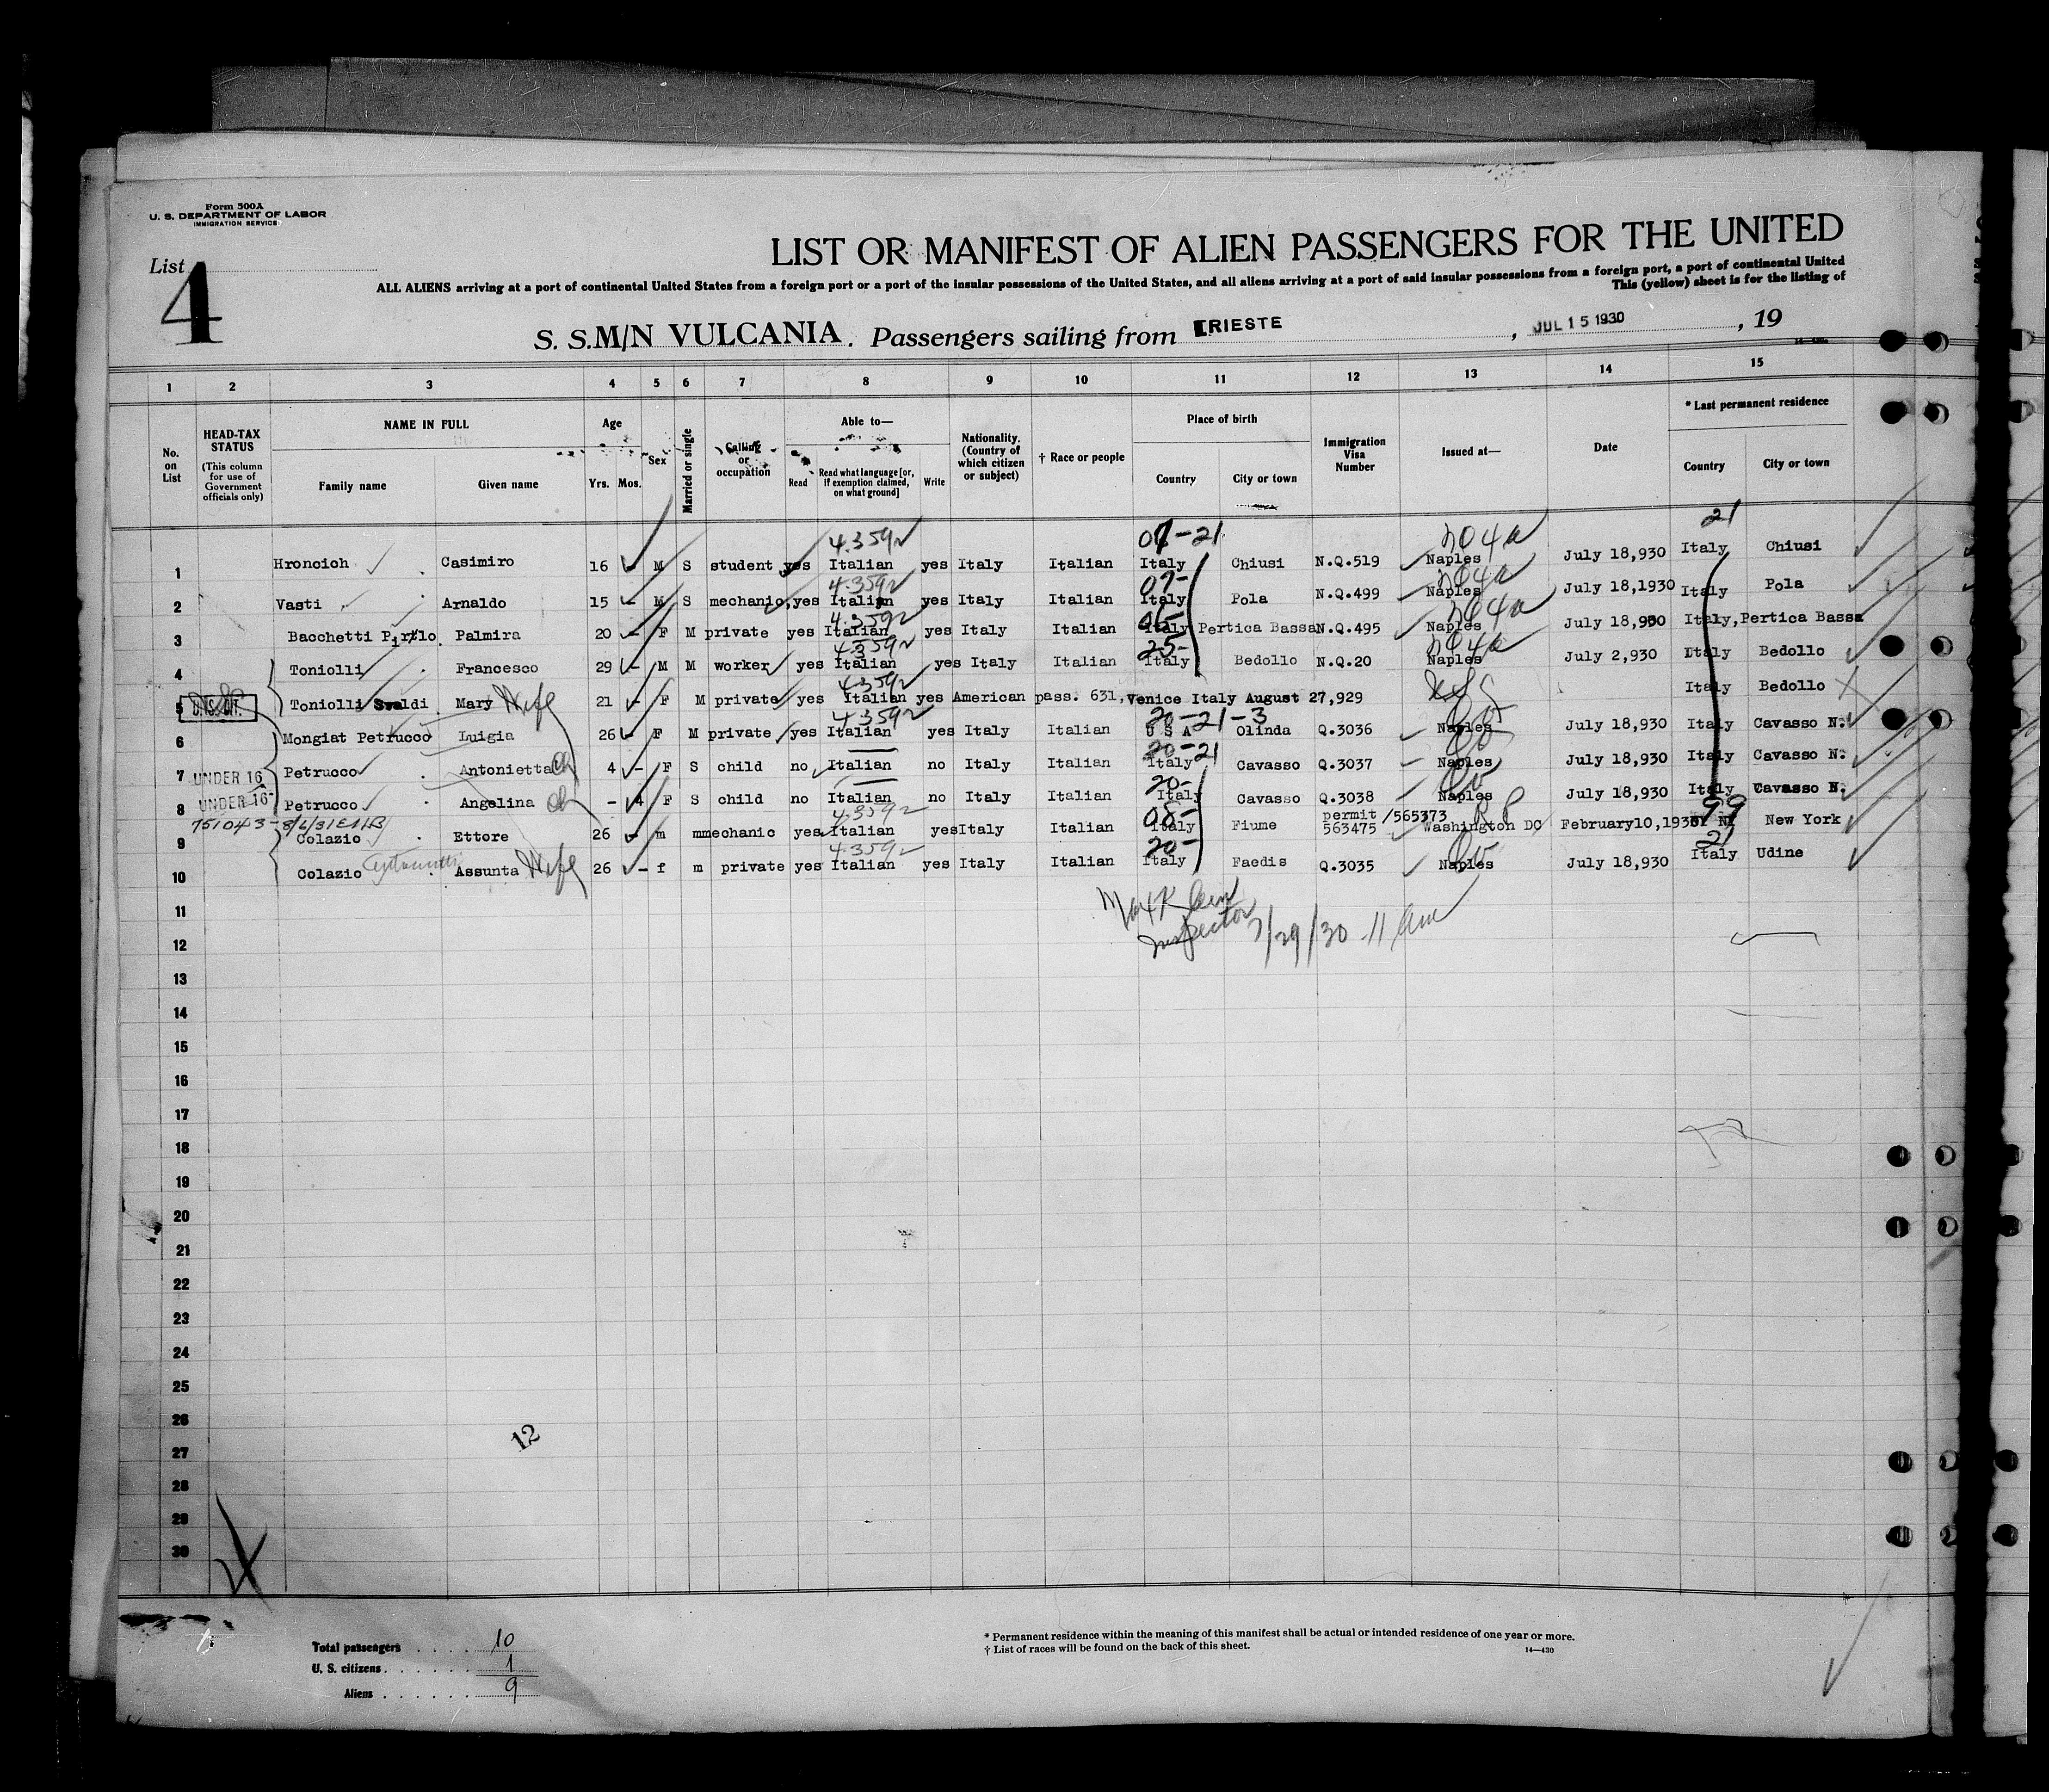 Form 500A
U. S. DEPARTMENT OF LABOR
IMMIGRATION SERVICE
List 4
LIST OR MANIFEST OF ALIEN PASSENGERS FOR THE UNITED
ALL ALIENS arriving at a port of continental United States from a foreign port or a port of the insular possessions of the United States, and all aliens arriving at a port of said insular possessions from a foreign port, a port of continental United
This (yellow) sheet is for the listing of
S. S. M/N VULCANIA. Passengers sailing from TRIESTE, JUL 15 1930, 19
1 2 3 4 5 6 7 8 9 10 11 12 13 14 15
No. on List
HEAD-TAX STATUS (This column for use of Government officials only)
NAME IN FULL
Family name
Given name
Age
Yrs. Mos.
Sex
Married or single
Calling or occupation
Able to—
Read
Read what language [or, if exemption claimed, on what ground]
Write
Nationality. (Country of which citizen or subject)
† Race or people
Place of birth
Country
City or town
Immigration Visa Number
Issued at—
Date
* Last permanent residence
Country
City or town
4.359 07-21 21
1 Hroncich Casimiro 16 - M S student yes Italian yes Italy Italian Italy Chiusi N.Q.519 Naples July 18,930 Italy Chiusi
4.359 07-
2 Vasti Arnaldo 15 - M S mechanic, yes Italian yes Italy Italian Italy Pola N.Q.499 Naples July 18,1930 Italy Pola
4.359 06-
3 Bacchetti Pirlo Palmira 20 - F M private yes Italian yes Italy Italian Italy Pertica Bassa N.Q.495 Naples July 18,930 Italy, Pertica Bassa
4.359 25-
4 Toniolli Francesco 29 - M M worker yes Italian yes Italy Italian Italy Bedollo N.Q.20 Naples July 2,930 Italy Bedollo
4.359
5 U.S. CIT. Toniolli Svaldi Mary Wife 21 - F M private yes Italian yes American pass. 631, Venice Italy August 27,929 Italy Bedollo
4.359 20-21-3
6 Mongiat Petrucco Luigia 26 - F M private yes Italian yes Italy Italian U S A Olinda Q.3036 Naples July 18,930 Italy Cavasso N.
20-21
7 UNDER 16 Petrucco Antonietta Ch 4 - F S child no Italian no Italy Italian Italy Cavasso Q.3037 Naples July 18,930 Italy Cavasso N.
20-
8 UNDER 16 Petrucco Angelina Ch - 4 F S child no Italian no Italy Italian Italy Cavasso Q.3038 Naples July 18,930 Italy Cavasso N.
751043-8/6/31 4.359 08- RP 99
9 Colazio Ettore 26 - m m mechanic yes Italian yes Italy Italian Italy Fiume permit /565373 563475 Washington DC February 10,1930 NY New York
4.359 20- 21
10 Colazio Assunta Wife 26 - f m private yes Italian yes Italy Italian Italy Faedis Q.3035 Naples July 18,930 Italy Udine
11
Inspector 7/29/30 - 11 am
12
13
14
15
16
17
18
19
20
21
22
23
24
25
26
12
27
28
29
30
Total passengers 10
U. S. citizens 1
Aliens 9
* Permanent residence within the meaning of this manifest shall be actual or intended residence of one year or more.
† List of races will be found on the back of this sheet.
14—430